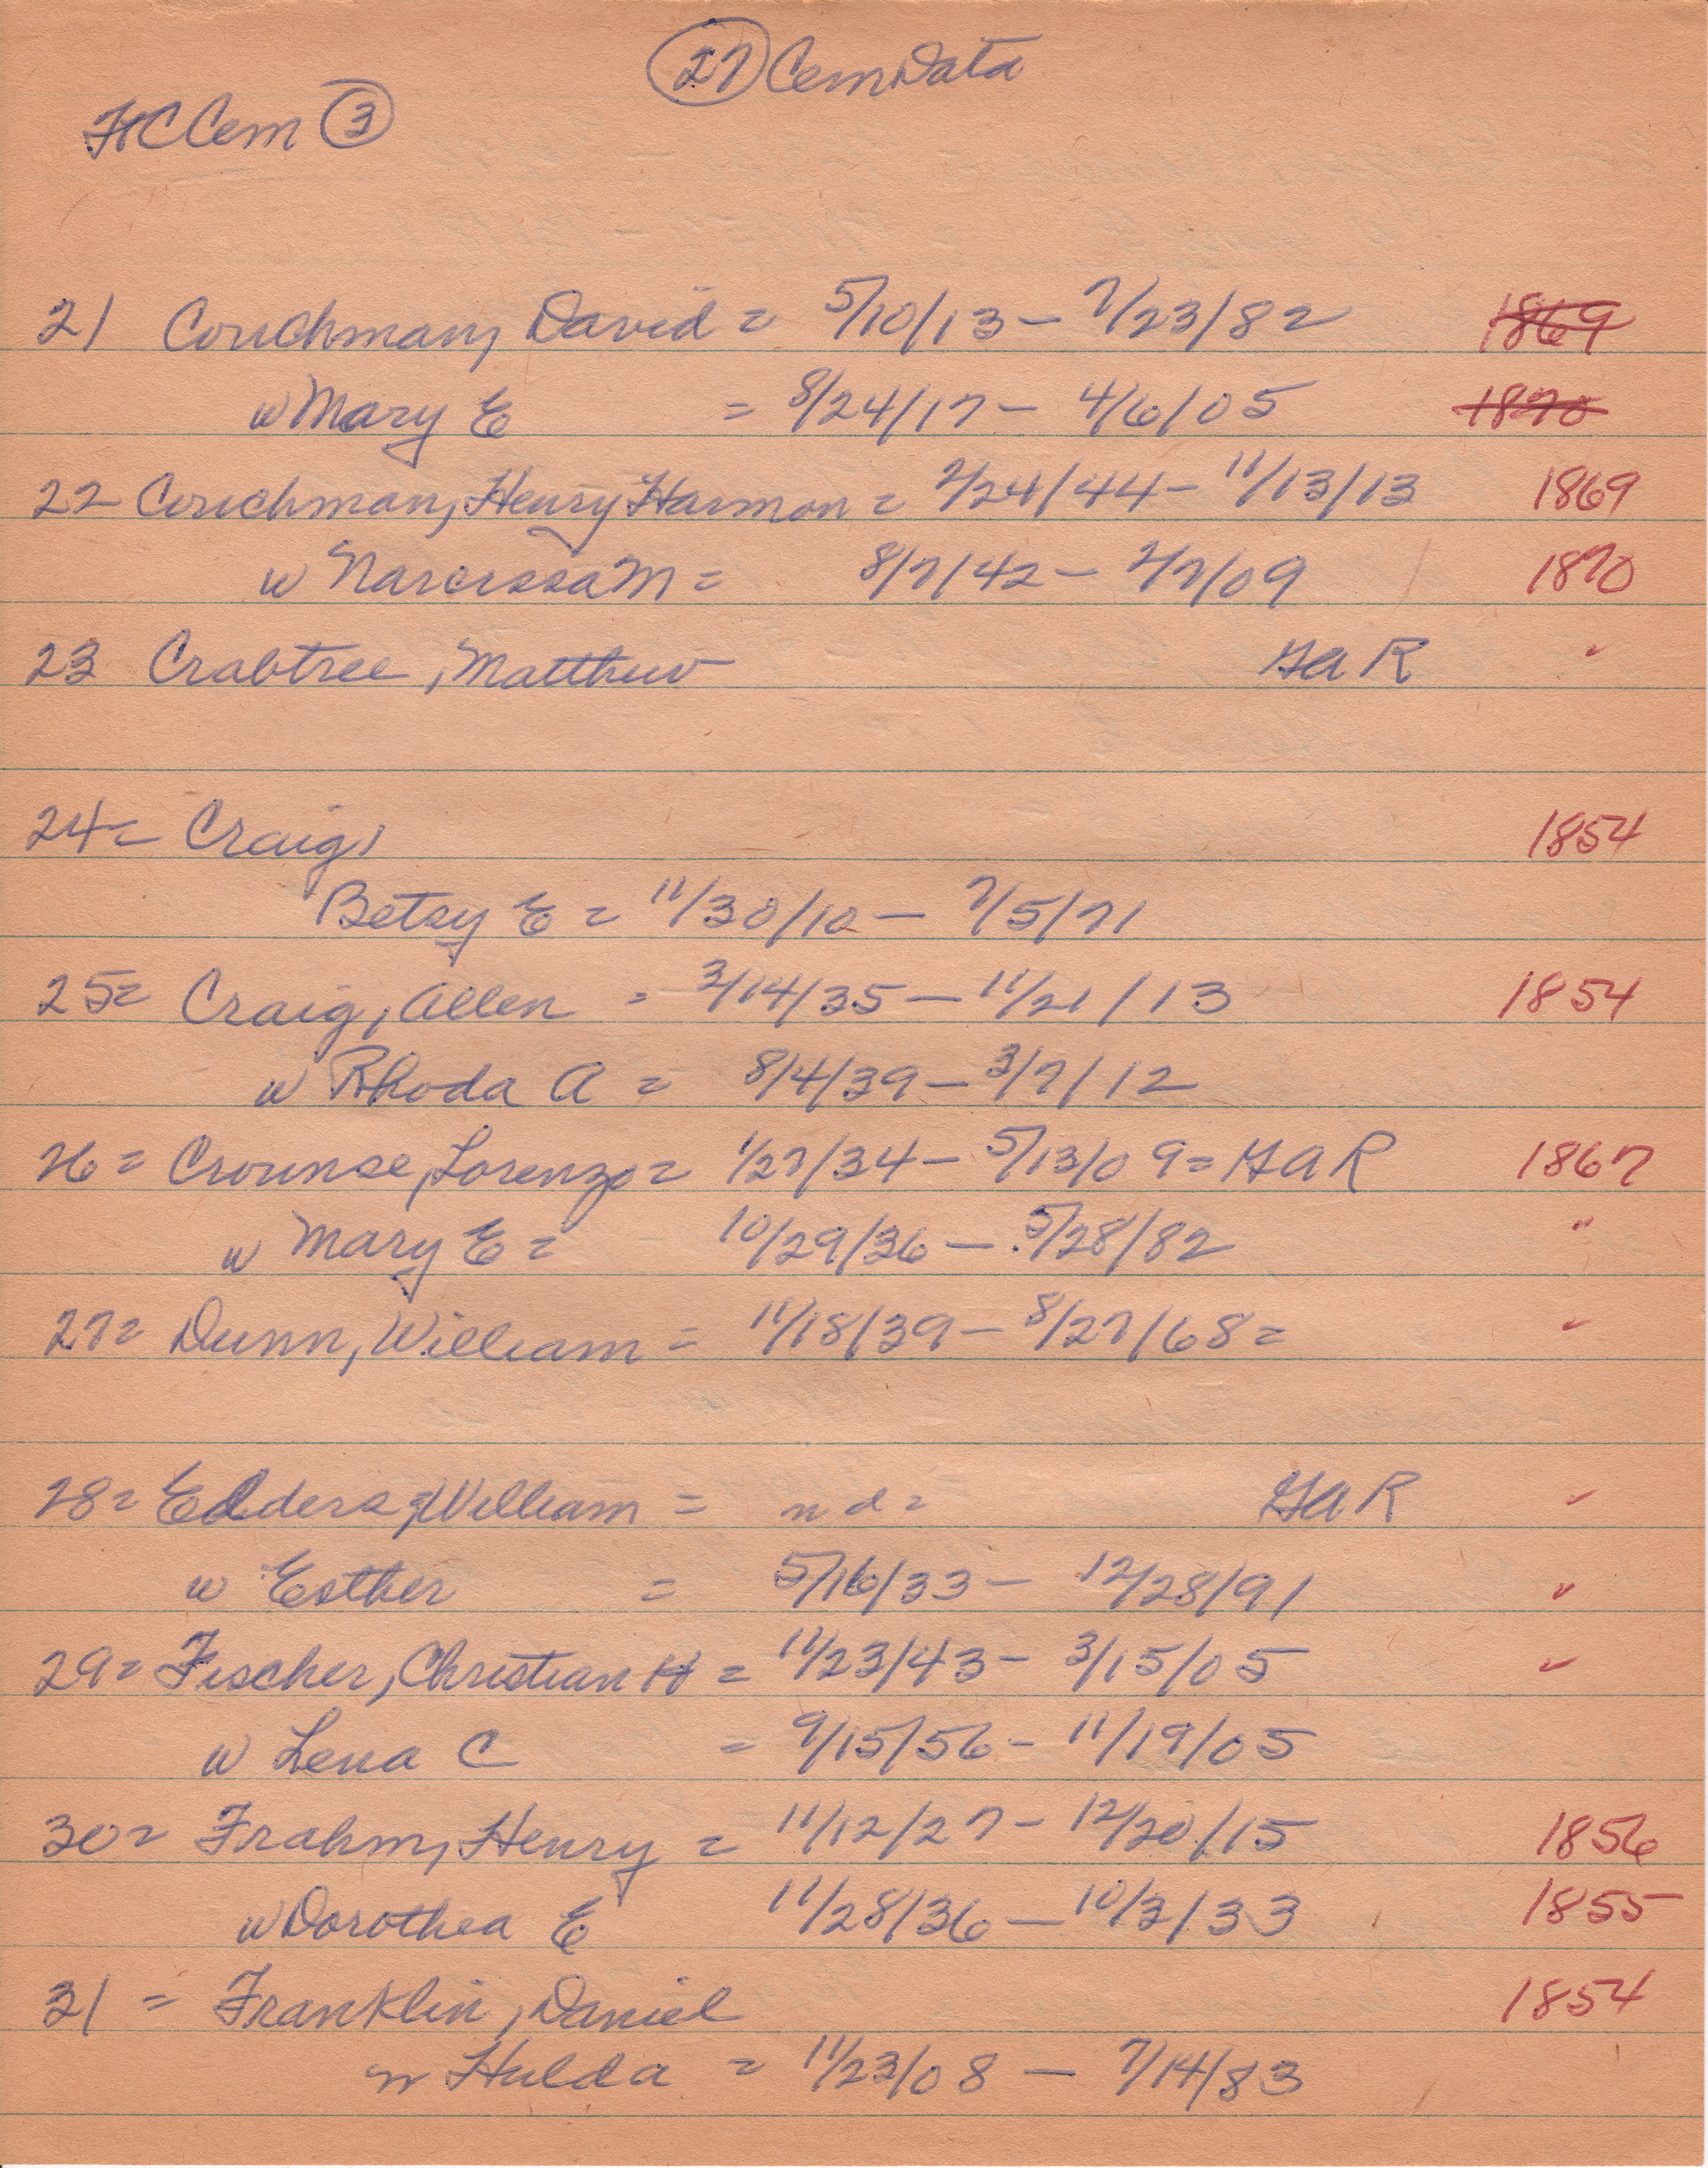 27 CemData
HC Cem 3
21 Couchman, David = 5/10/13 – 7/23/82 1869
w Mary E = 8/24/17 – 4/6/05 1870
22 Couchman, Henry Harmon = 2/24/44 – 11/13/13 1869
w Narcissa M = 8/7/42 – 2/7/09 1870
23 Crabtree, Matthew GAR "
24 = Craig, 1854
Betsy E = 11/30/10 – 7/5/71
25 = Craig, Allen = 3/14/35 – 11/21/13 1854
w Rhoda A = 8/4/39 – 3/7/12
26 = Crounse, Lorenzo = 1/27/34 – 5/13/09 = GAR 1867
w Mary E = 10/29/36 – 5/28/82 "
27 = Dunn, William = 11/18/39 – 8/27/68 = "
28 = Edders, William = nd = GAR "
w Esther = 5/16/33 – 12/28/91 "
29 = Fischer, Christian H = 11/23/43 – 3/15/05 "
w Lena C = 9/15/56 – 11/19/05
30 = Frahm, Henry = 11/12/27 – 12/20/15 1856
w Dorothea E 11/28/36 – 10/3/33 1855
31 = Franklin, Daniel 1854
w Hulda = 11/23/08 – 7/14/83